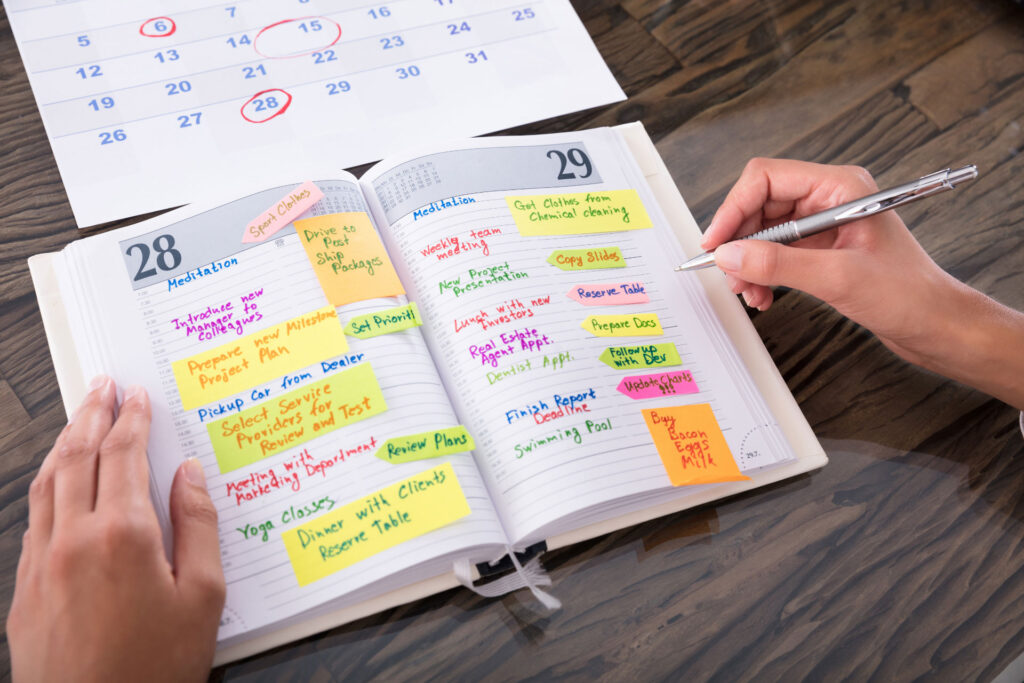 6 7 8
5 13 14 15 16 25
12 20 21 22 23 24
19 27 28 29 30 31
26
28
Sport Clothes
Meditation
Drive to
Post
Ship
Packages
Introduce new
Manager to
colleagues
Set Prioriti
Prepare new Milestone
Project Plan
Pickup Car from Dealer
Select Service
Providers for
Review and Test
Meeting with
Marketing Department
Review Plans
Yoga Classes
Dinner with Clients
Reserve Table
29
Meditation
Got Clothes from
Chemical cleaning
Weekly team
meeting
Copy Slides
New Project
Presentation
Reserve Table
Lunch with new
Investors
Prepare Docs
Real Estate
Agent Appt.
Followup
with Dev
Dentist Appt.
Update Charts
!!!
Finish Report
Deadline
Buy
Bacon
Eggs
Milk
Swimming Pool
29.7.